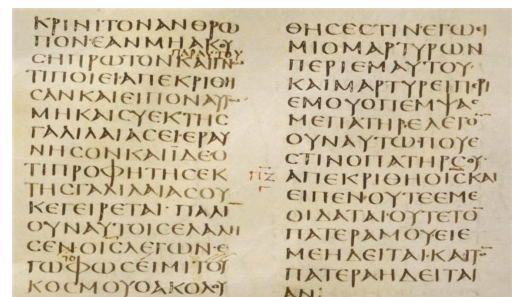 ΚΡΙΝΙΤΟΝΑΝΘΡΩ
ΠΟΝΕΑΝΜΗΑΚΟΥ
ΠΑΡΑΥΤΟΥ
ϹΗΠΡΩΤΟΝΚΑΙΓΝ
ΤΙΠΟΙΕΙΑΠΕΚΡΙΘΗ
ϹΑΝΚΑΙΕΙΠΟΝΑΥΤ
ΜΗΚΑΙϹΥΕΚΤΗϹ
ΓΑΛΙΛΑΙΑϹΕΙΕΡΑΥ
ΝΗϹΟΝΚΑΙΪΔΕΟ
ΤΙΠΡΟΦΗΤΗϹΕΚ
ΤΗϹΓΑΛΙΛΑΙΑϹΟΥ
ΚΕΓΕΙΡΕΤΑΙ·ΠΑΛΙ̅
ΟΥΝΑΥΤΟΙϹΕΛΑΛΙ
ϹΕΝΟΙϹΛΕΓΩΝΕ
ΤΟ
ΓΩΦΩϹΕΙΜΙΤΟΥ
ΚΟϹΜΟΥΟΑΚΟΛΟΥ
ΠΖ
Γ
ΘΗϹΕϹΤΙΝΕΓΩΕΙ
ΜΙΟΜΑΡΤΥΡΩΝ
ΠΕΡΙΕΜΑΥΤΟΥ·
ΚΑΙΜΑΡΤΥΡΕΙΠΕΡΙ
ΕΜΟΥΟΠΕΜΨΑϹ
ΜΕΠΑΤΗΡ·ΕΛΕΓΟ̅
ΟΥΝΑΥΤΩΠΟΥΕ
ϹΤΙΝΟΠΑΤΗΡϹΟΥ·
ΑΠΕΚΡΙΘΗΟΙϹΚΑΙ
ΕΙΠΕΝ·ΟΥΤΕΕΜΕ
ΟΙΔΑΤΑΙ·ΟΥΤΕΤΟ̅
ΠΑΤΕΡΑΜΟΥΕΙΕ
ΜΕΗΔΕΙΤΑΙ·ΚΑΙΤΟ̅
ΠΑΤΕΡΑΗΔΕΙΤΑΙ
ΑΝ·